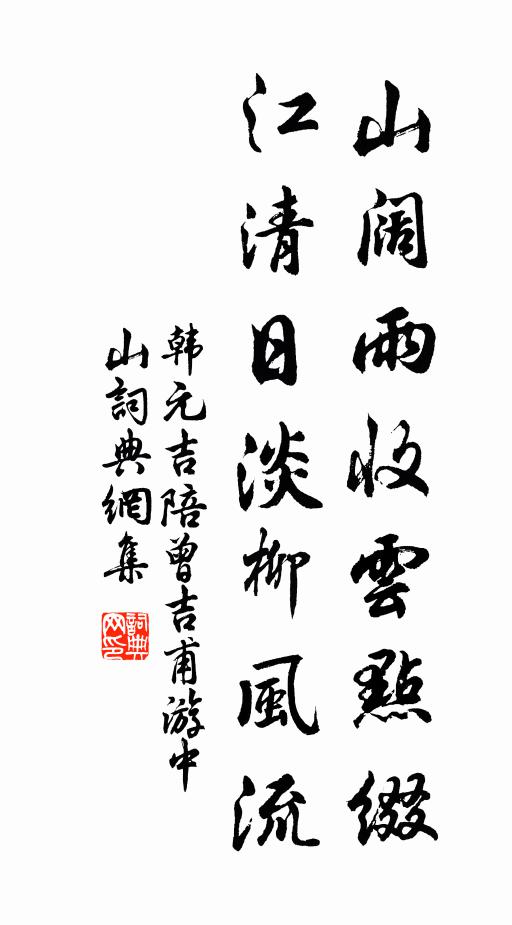 山闊雨收雲點綴
江清日淡柳風流
韩元吉陪曾吉甫游中
山詞典網集
詞典
网印